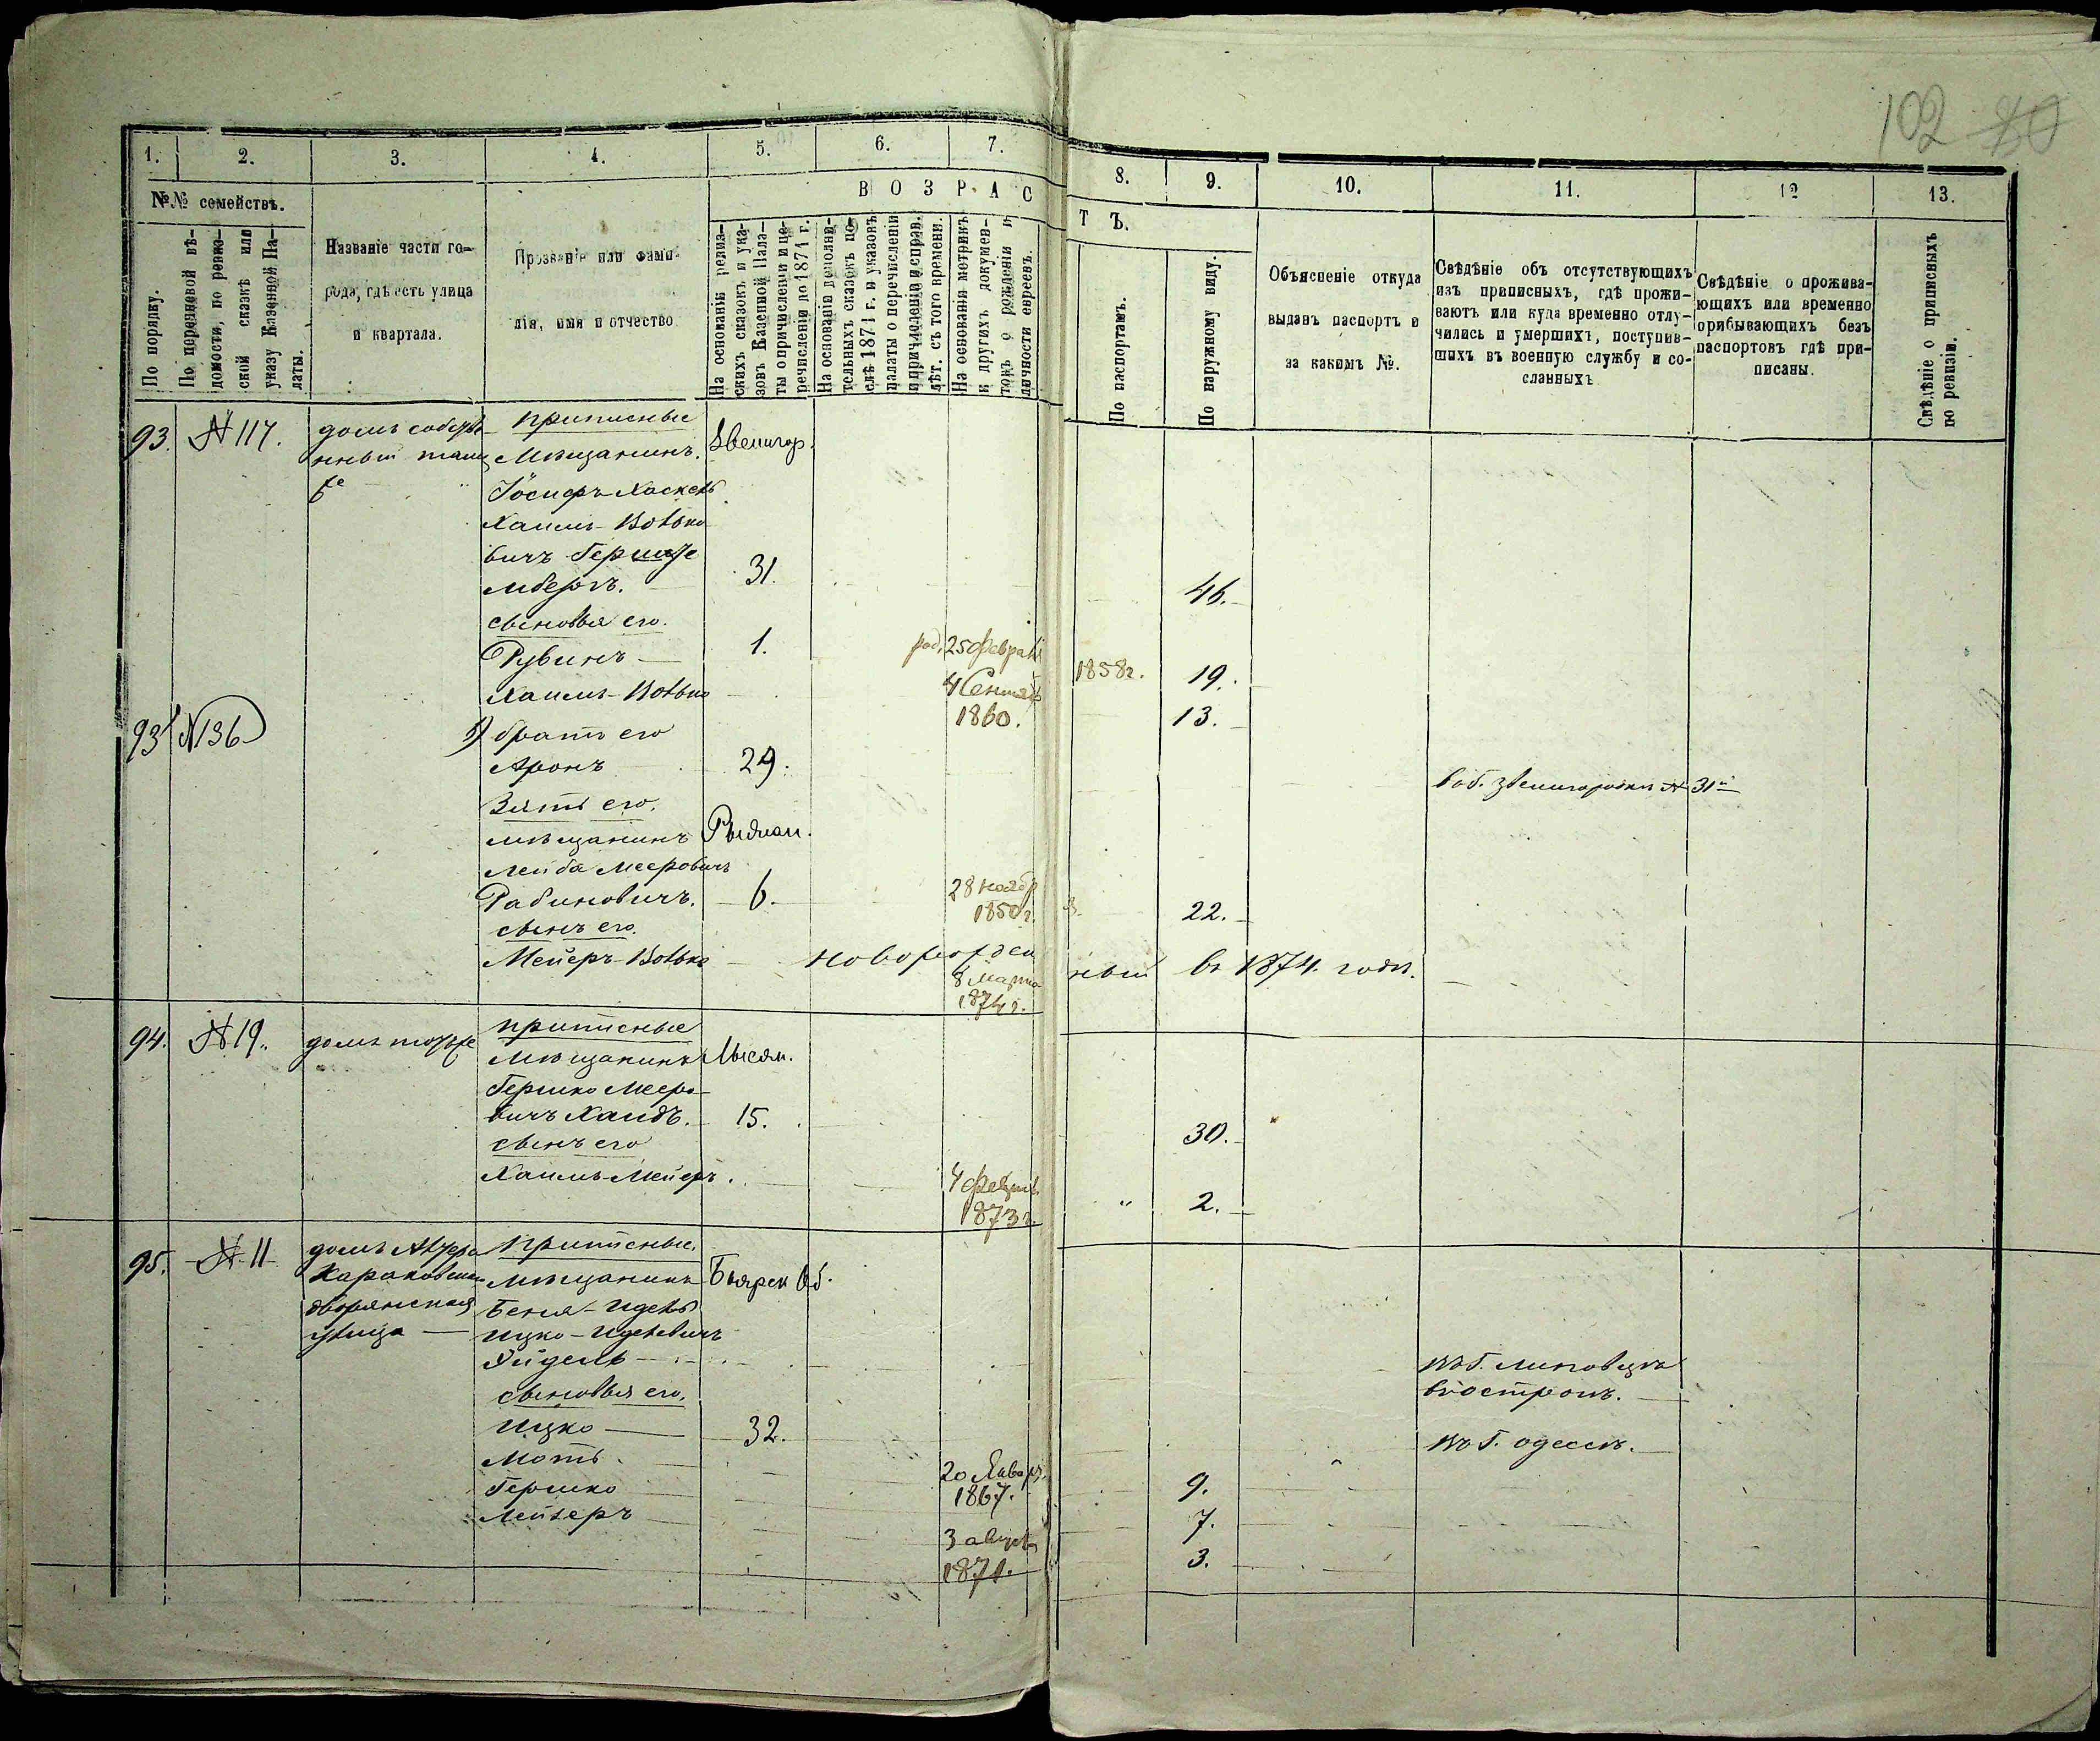 102 80
1. 2. 3. 4. 5. 6. 7. 8. 9. 10. 11. 12 13.
№№ семействъ.
ВОЗРАСТЪ.
По порядку.
По перечневой вѣ-
домости, по ревиз-
ской сказкѣ или
указу Казенной Па-
латы.
Названіе части го-
рода, гдѣ есть улица
и квартала.
Прозваніе или фами-
лія, имя и отчество
На основаніи ревиз-
скихъ сказокъ и ука-
зовъ Казенной Пала-
ты о причисленіи и пе-
речисленіи до 1871 г.
На основаніи дополни-
тельныхъ сказокъ по-
слѣ 1871 г. и указовъ
палаты о перечисленіи
и причисленіи и справ.
лѣт. съ того времени.
На основаніи метрикъ
и другихъ докумен-
товъ о рожденіи и
личности евреевъ.
По паспортамъ.
По наружному виду.
Объясненіе откуда
выданъ паспортъ и
за какимъ №.
Свѣдѣніе объ отсутствующихъ
изъ приписныхъ, гдѣ прожи-
ваютъ или куда временно отлу-
чились и умершихъ, поступив-
шихъ въ военную службу и со-
сланныхъ
Свѣдѣніе о прожива-
ющихъ или временно
прибывающихъ безъ
паспортовъ гдѣ при-
писаны.
Свѣдѣніе о приписныхъ
по ревизіи.
93. №117. домъ приписные
Мѣщанинъ. Звенигор.
Іосифъ Хаскель
Хаимъ-Волько
вичъ Герш
мбергъ. 31. 46.
сыновья его.
Рувинъ 1. род. 25 Февраля 1858г. 19.
Хаимъ-Волько 4 Сентяб
1860. 13.
93 №136 братъ его
Аронъ 29. Звенигородки № 31
Зять его.
мѣщанинъ
Лейба Мееровичъ
Рабиновичъ. 6. 28 Нояб
185 г. 22.
сынъ его.
Мейеръ-Волько новорожденный въ 1874. году.
8 Марта
1874 г.
94. №19. домъ тотже приписные
Мѣщанинъ Лысян.
Гершко Мееро
вичъ Хаидъ. 15. 30.
сынъ его
Хаимъ-Мейеръ. 4 Феврал.
1873 г. " 2.
95. №11 домъ приписные.
мѣщанинъ Боярск Об.
дворянская Беня-Идель
улица Ицко-Иделевичъ
Фидель въ Г. Липовецка
сыновья его. въ острогѣ.
Ицко 32. въ Г. Одессѣ.
Моть 20 Январ.
1867. 9.
Гершко 7.
Лейзеръ 3 август
1871. 3.